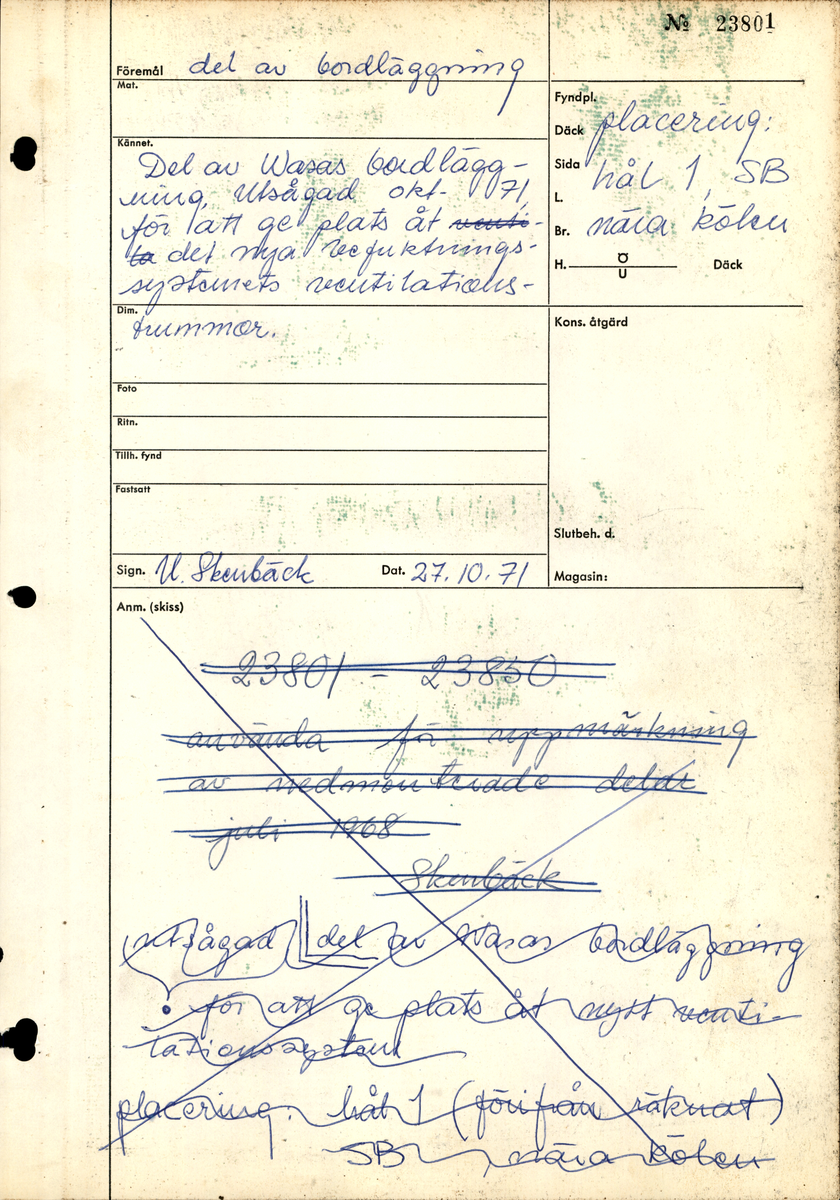 № 23801
Föremål del av bordläggning
Mat.
Kännet.
Del av Wasas bordlägg-
ning. Utsågad okt- 71,
för att ge plats åt venti-
la det nya befuktnings-
systemets ventilations-
Dim.
trummor.
Foto
Ritn.
Tillh. fynd
Fastsatt
Sign. U. Skenbäck Dat. 27.10.71
Fyndpl.
Däck placering:
Sida hål 1, SB
L.
Br. nära kölen
H. Ö Däck
U
Kons. åtgärd
Slutbeh. d.
Magasin:
Anm. (skiss)
23801 - 23850
använda för uppmärkning
av nedmonterade delar
juli 1968
Skenbäck
utsågad del av Wasas bordläggning
för att ge plats åt nytt venti-
lationssystem
placering: hål 1 (förifrån räknat)
SB, nära kölen